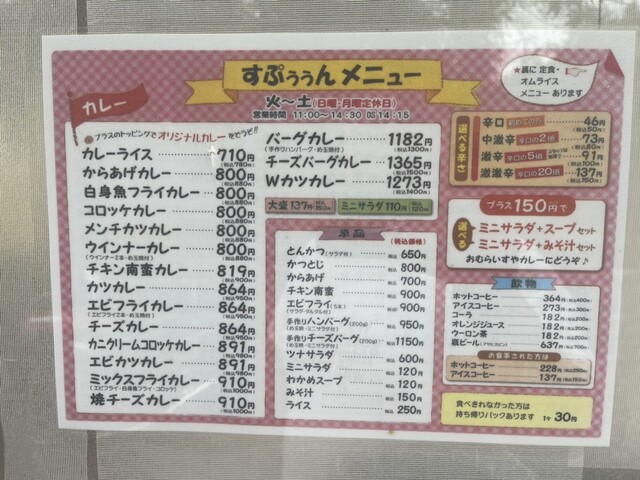 すぷぅぅん メニュー
火～土(日曜・月曜定休日)
営業時間 11:00～14:30 OS 14:15
裏に 定食・
オムライス
メニュー あります
カレー
プラスのトッピングでオリジナルカレーをどうぞ!!
カレーライス 710円
(税込780円)
からあげカレー 800円
(税込880円)
白身魚フライカレー 800円
(税込880円)
コロッケカレー 800円
(税込880円)
メンチカツカレー 800円
(税込880円)
ウインナーカレー 800円
(ウインナー2本・め玉焼付) (税込880円)
チキン南蛮カレー 819円
(税込900円)
カツカレー 864円
(税込950円)
エビフライカレー 864円
(エビフライ2本・め玉焼付) (税込950円)
チーズカレー 864円
(税込950円)
カニクリームコロッケカレー 891円
(税込980円)
エビカツカレー 891円
(税込980円)
ミックスフライカレー 910円
(エビフライ・白身魚フライ・コロッケ) (税込1000円)
焼チーズカレー 910円
(税込1000円)
バーグカレー 1182円
(手作りハンバーグ・め玉焼付) (税込1300円)
チーズバーグカレー 1365円
(税込1500円)
Wカツカレー 1273円
(税込1400円)
大盛 137円 税込150円
ミニサラダ 110円 税込120円
単品 (税込価格)
とんかつ(サラダ付) 税込 650円
かつとじ 税込 800円
からあげ 税込 700円
チキン南蛮 税込 900円
エビフライ(5本) 税込 900円
(サラダ・タルタル付)
手作りハンバーグ(200g) 税込 950円
(め玉焼・ミニサラダ付)
手作りチーズバーグ(200g) 税込 1150円
(め玉焼・ミニサラダ付)
ツナサラダ 税込 600円
ミニサラダ 税込 120円
わかめスープ 税込 120円
みそ汁 税込 150円
ライス 税込 250円
選べる辛さ
辛口 46円
(税込50円)
中激辛 辛口の2倍 73円
(税込80円)
激辛 辛口の5倍 91円
(税込100円)
激激辛 辛口の20倍 137円
(税込150円)
プラス150円で
選べる
ミニサラダ+スープセット
ミニサラダ+みそ汁セット
おむらいすやカレーにどうぞ♪
飲物
ホットコーヒー 364円(税込400円)
アイスコーヒー 273円(税込300円)
コーラ 182円(税込200円)
オレンジジュース 182円(税込200円)
ウーロン茶 182円(税込200円)
瓶ビール 637円(税込700円)
お食事された方は
ホットコーヒー 228円(税込250円)
アイスコーヒー 137円(税込150円)
食べきれなかった方は
持ち帰りパックあります 1ヶ 30円